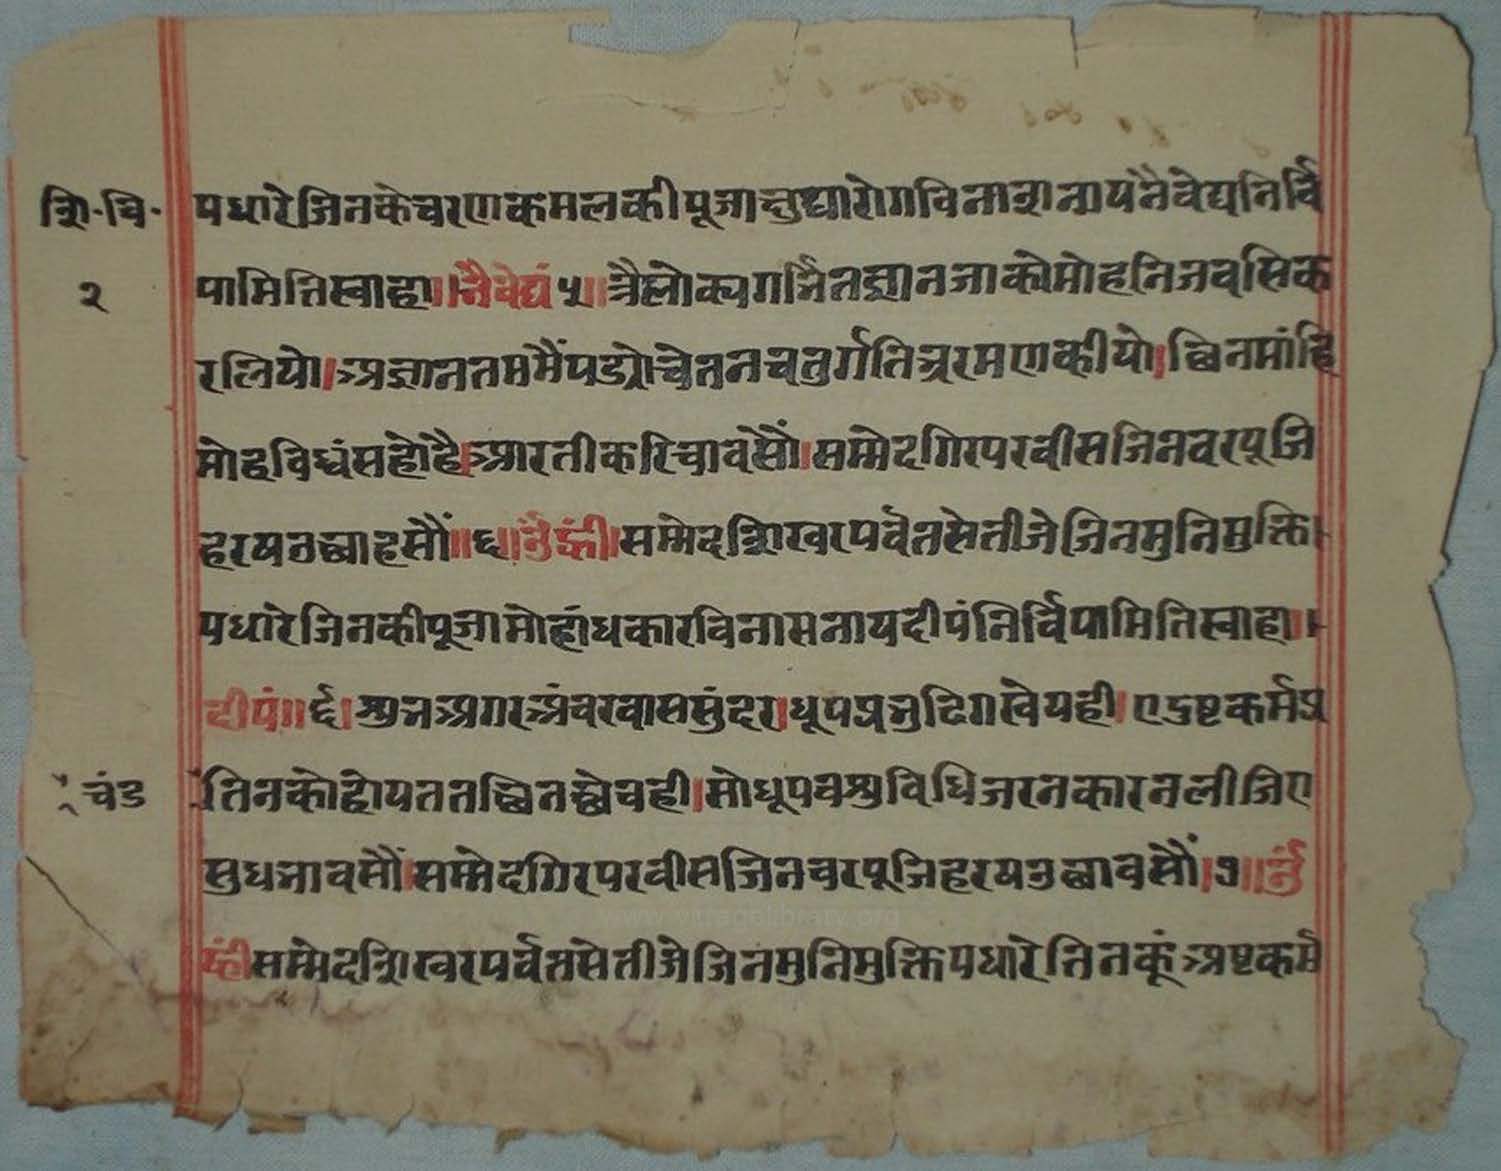 शि·वि· पधारेजिनकेचरणकमलकीपूजाक्षुधारोगविनाशनायनैवेद्यनिर्वि
२ पामितिस्वाहा॥नैवेद्यं५॥त्रैलोक्यगर्भितज्ञानजाकोमोहनिजवसिक
रलियो।अज्ञानतममैंपड्योचेतनचतुर्गतिभ्ररमणकीयो।छिनमांहि
मोहविध्वंसहोहै।आरतीकरिचावसौं।सम्मेदगिरपरवीसजिनवरपूजि
हरयउछाहसौं॥६॥ॐह्रीं।सम्मेदशिखरपर्वतसेतीजेजिनमुनिमुक्ति
पधारेजिनकीपूजामोहांधकारविनासनायदीपंनिर्विपामितिस्वाहा॥
दीपं॥६।शुभअगरअंवरवाससुंदर।धूपप्रभुढिगखेयही।एदुष्टकर्मप्र
चंड तिनकोहोयततछिनछेवही।मोधूपवशुविधिजरनकारनलीजिए
सुधभावसौं।सम्मेदगिरपरवीसजिनवरपूजिहरयउछावसौं।७॥ॐ
ह्रीसम्मेदशिखरपर्वतसेतीजेजिनमुनिमुक्तिपधारेतिनकूंअष्टकर्म
www.vitragalibrary.org